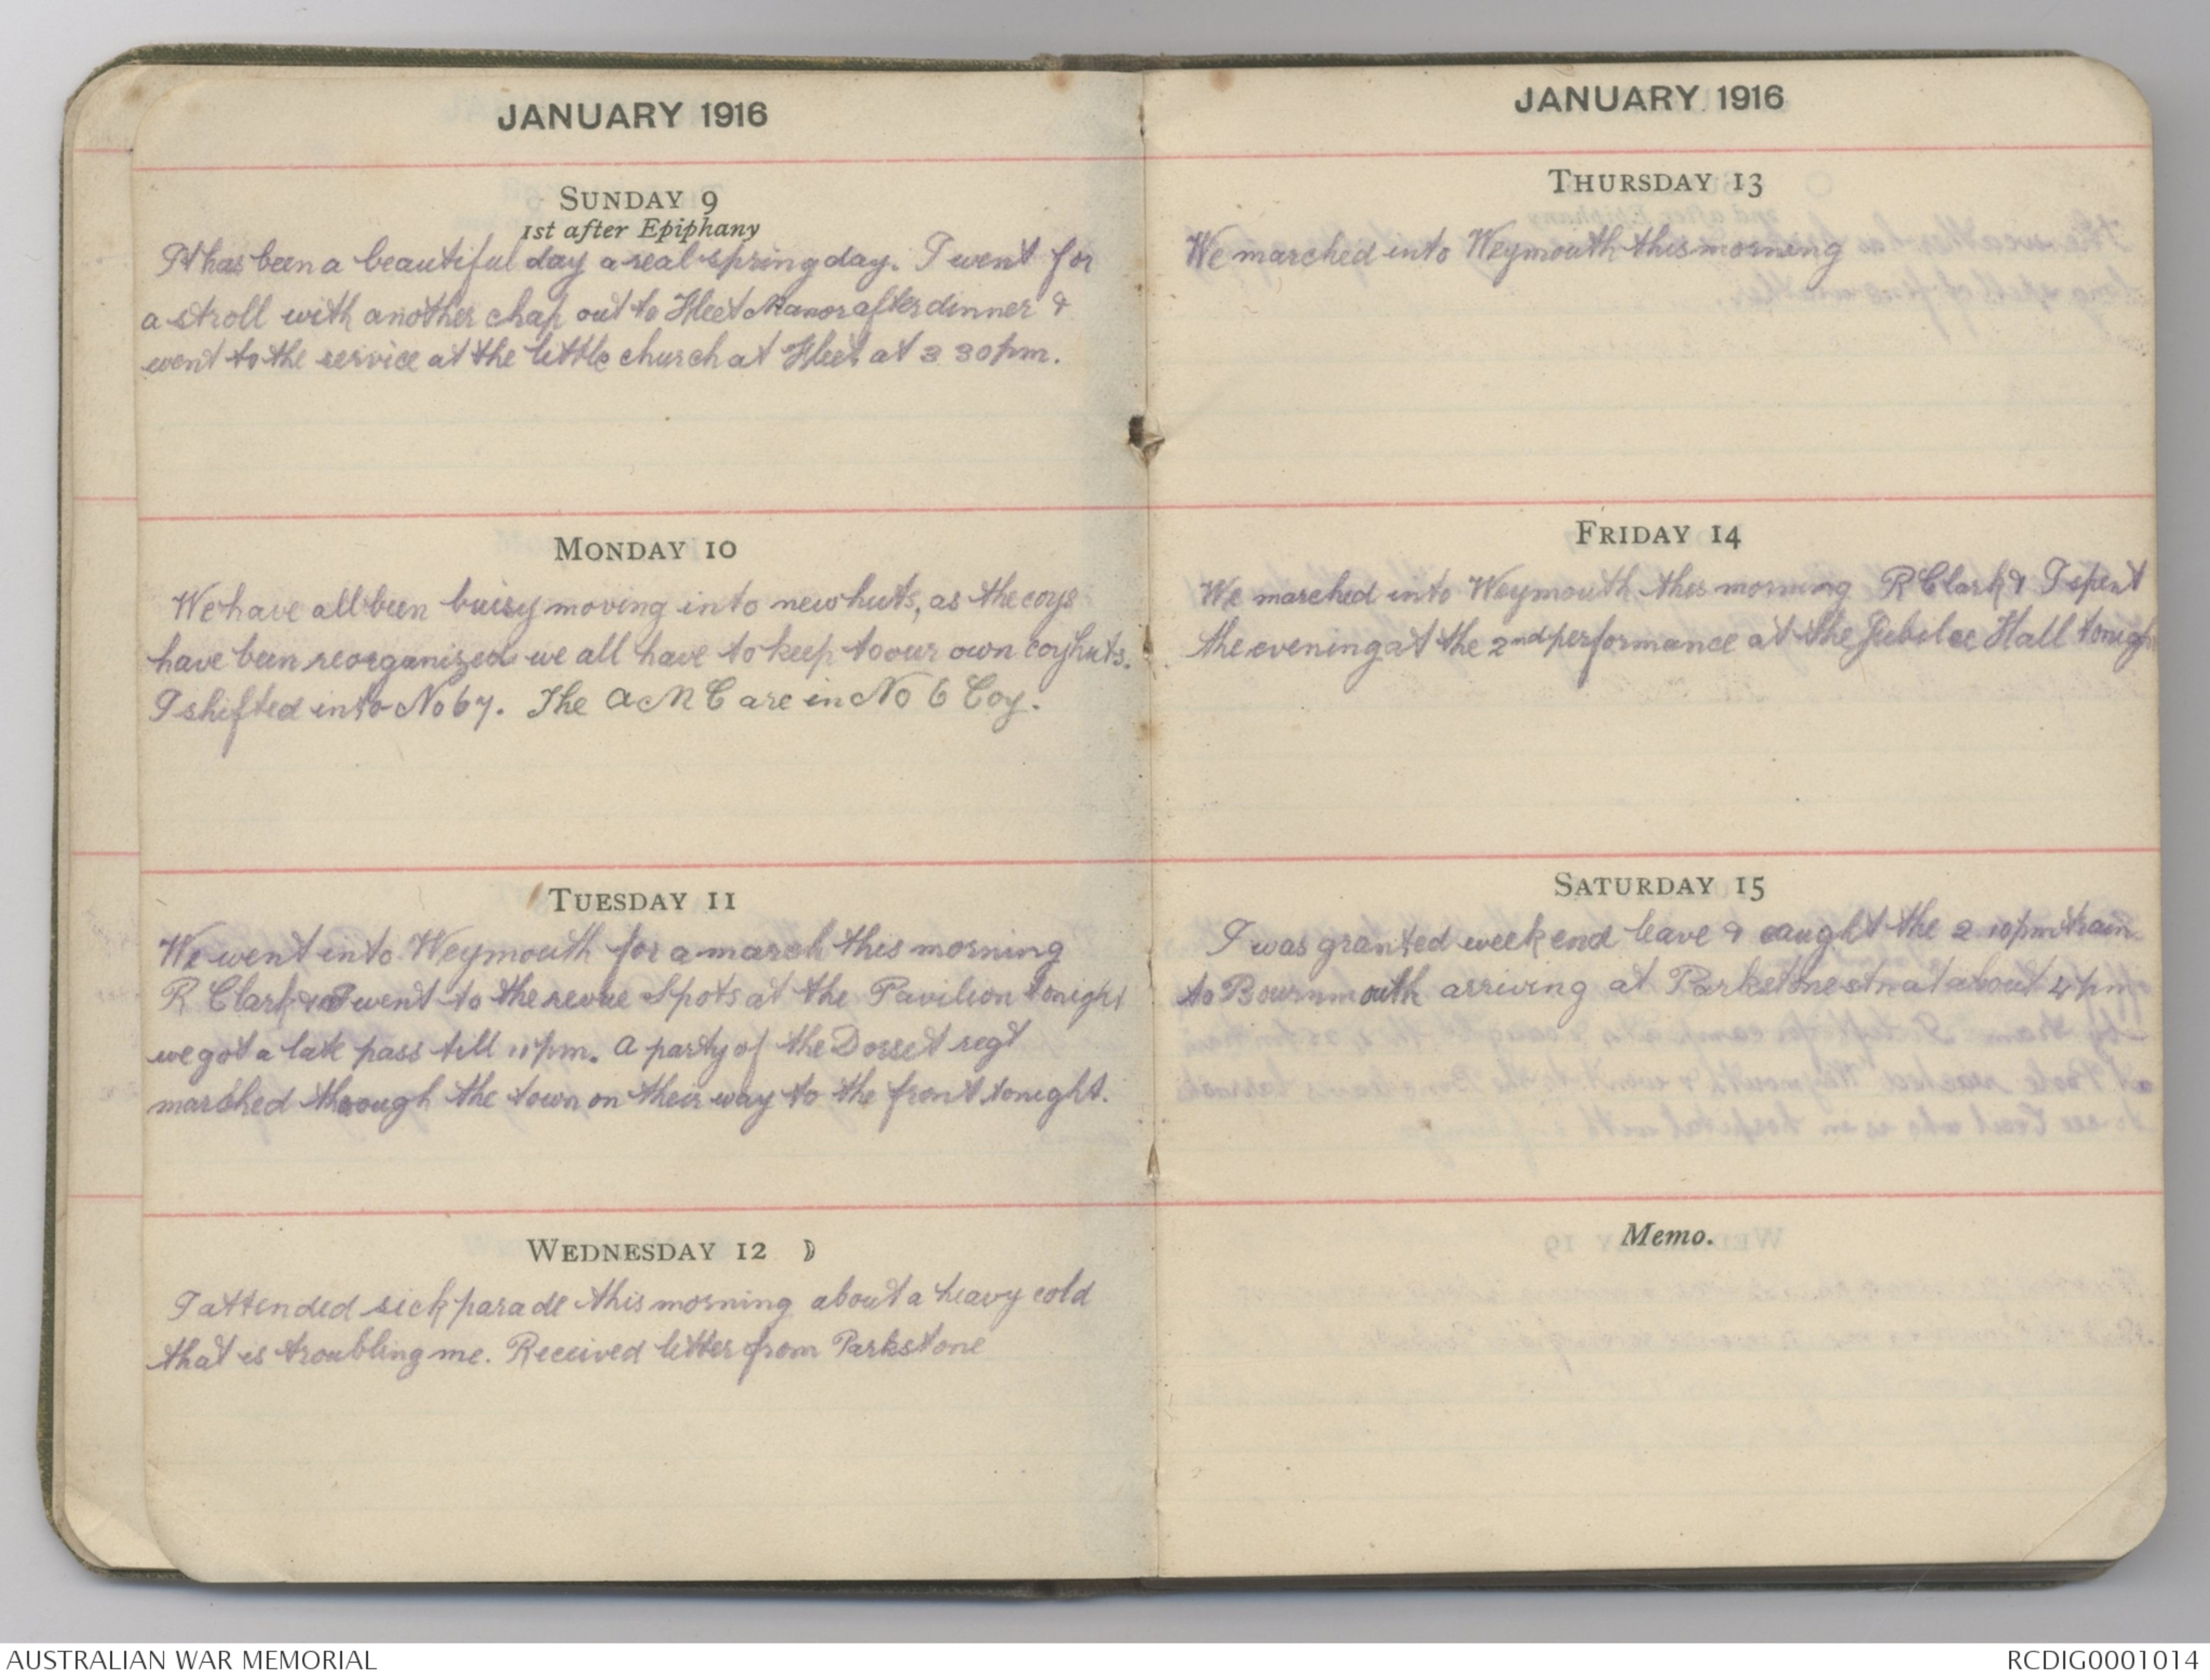 JANUARY 1916
SUNDAY 9
1st after Epiphany
It has been a beautiful day a real spring day. I went for
a stroll with another chap out to Fleet Manor after dinner &
went to the service at the little church at Fleet at 3 30 pm.
MONDAY 10
We have all been buisy moving into new huts, as the coys
have been reorganized we all have to keep to our own coy huts.
I shifted into No 67. The A M C are in No 6 Coy.
TUESDAY 11
We went into Weymouth for a march this morning
R Clark & I went to the revue Spots at the Pavilion tonight
we got a late pass till 11 pm. A party of the Dorset regt
marched through the town on their way to the front tonight.
WEDNESDAY 12
I attended sick parade this morning about a heavy cold
that is troubling me. Received letter from Parkstone
JANUARY 1916
THURSDAY 13
We marched into Weymouth this morning
FRIDAY 14
We marched into Weymouth this morning R Clark & I spent
the evening at the 2nd performance at the Jubilee Hall tonigh
SATURDAY 15
I was granted week end leave & caught the 2 10 pm train
to Bournmouth arriving at Parkstone stn at about 4 pm
Memo.
AUSTRALIAN WAR MEMORIAL
RCDIG0001014